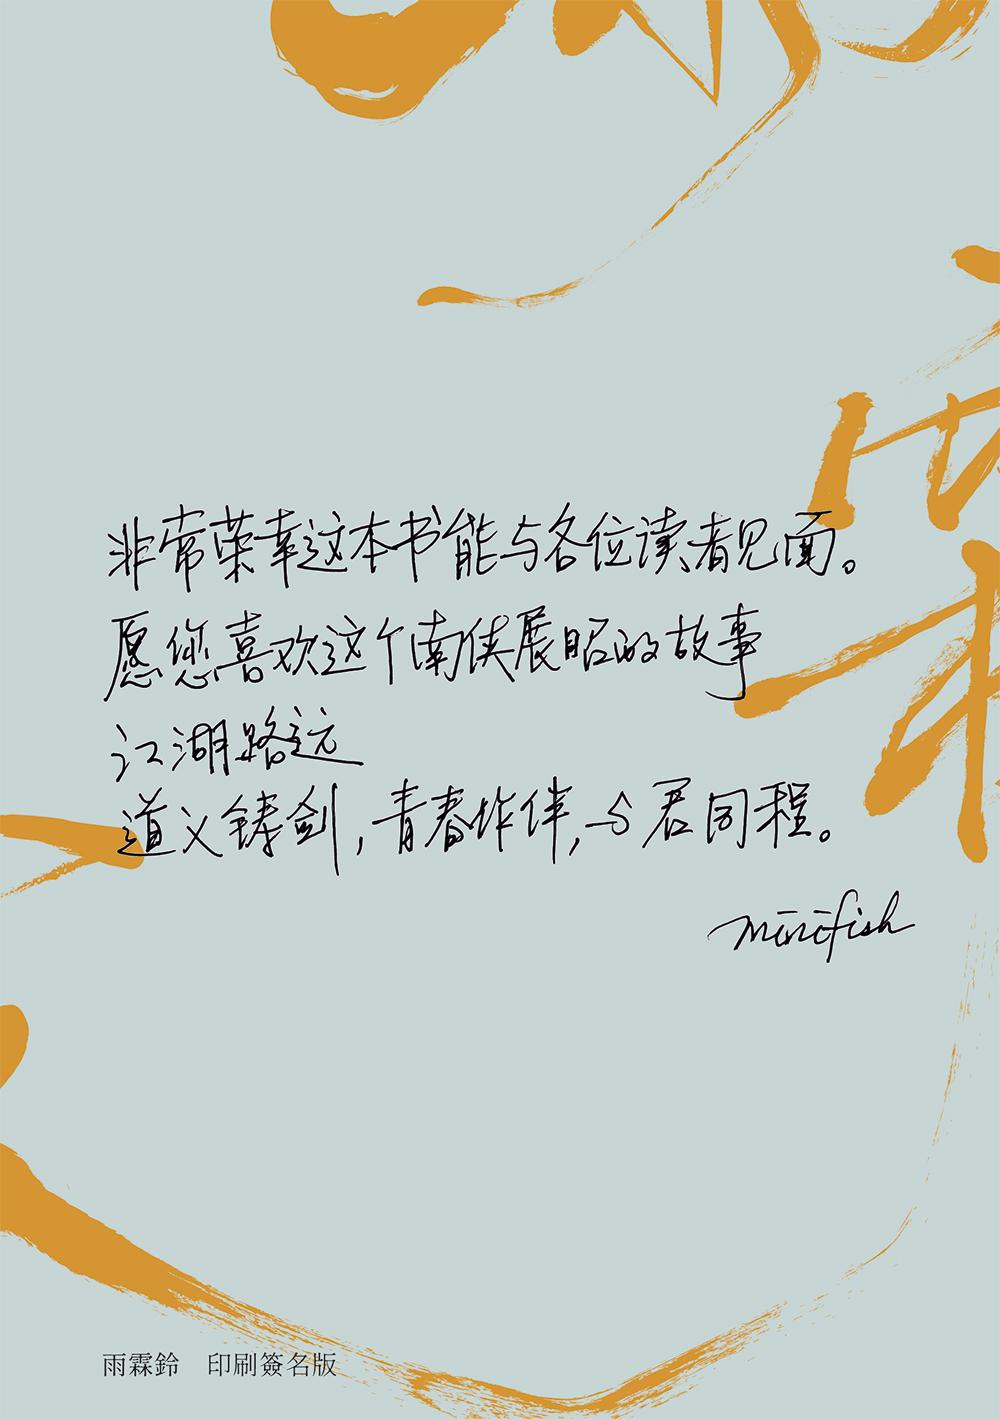 非常荣幸这本书能与各位读者见面。
愿您喜欢这个南侠展昭的故事
江湖路远
道义铸剑，青春作伴，与君同程。
minifish
雨霖鈴　印刷簽名版